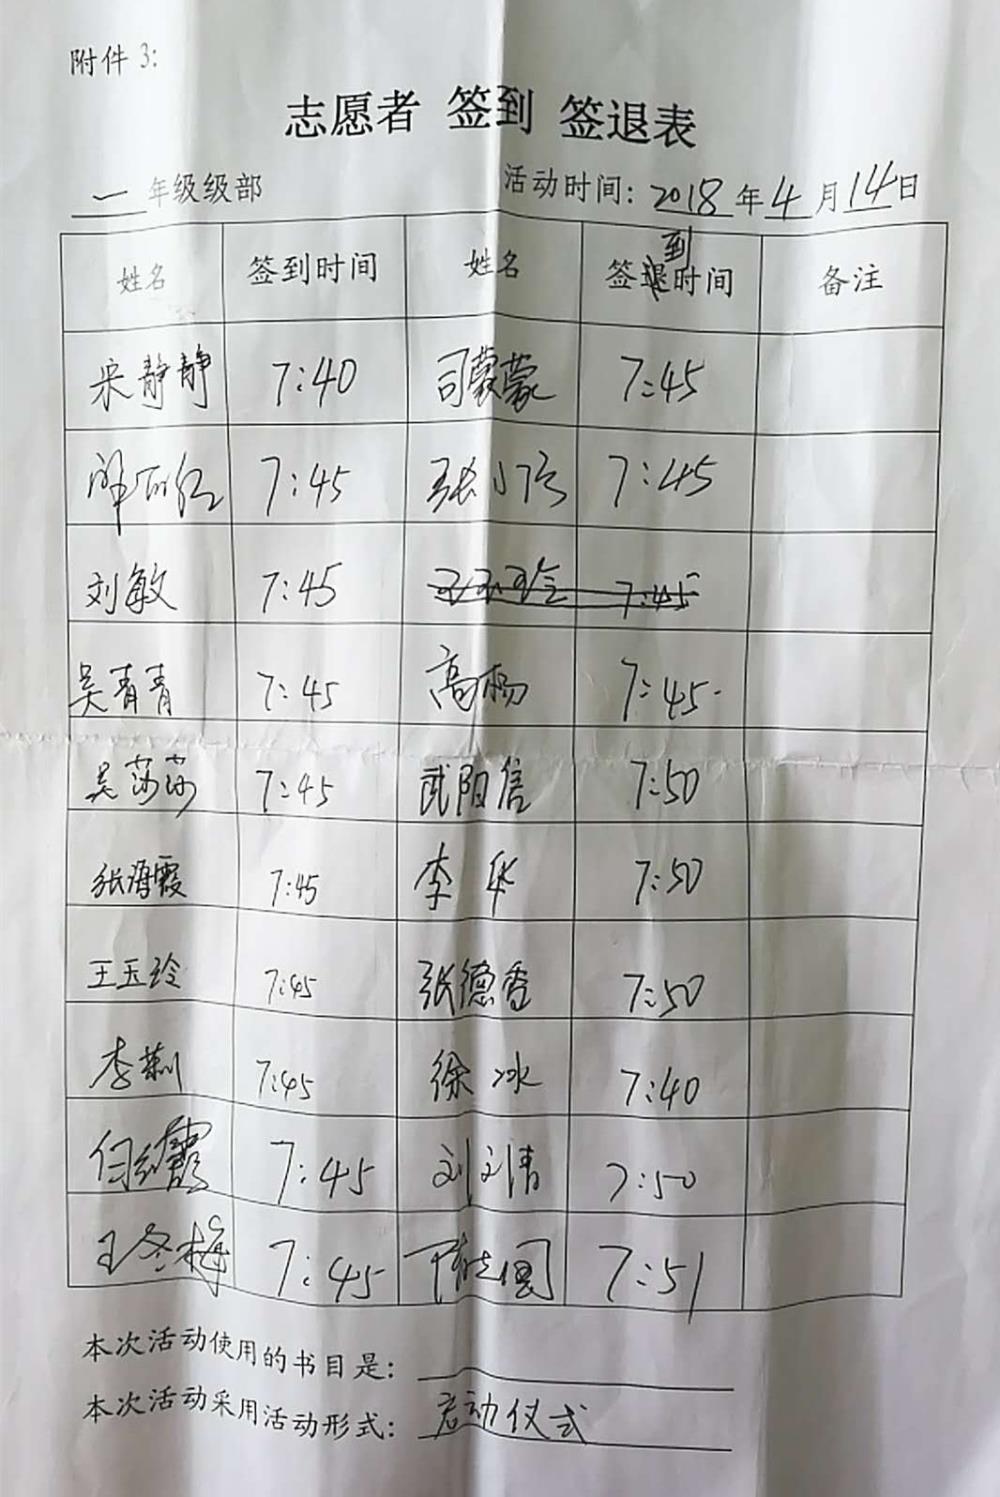 附件3:
志愿者 签到 签退表
一年级级部 活动时间: 2018年4月14日
姓名 签到时间 姓名 签到时间 备注
宋静静 7:40 司蒙蒙 7:45
7:45 张小 7:45
刘敏 7:45 王玉玲 7:45
吴青青 7:45 高杨 7:45
吴莎莎 7:45 武阳信 7:50
张海霞 7:45 李华 7:50
王玉玲 7:45 张德香 7:50
李莉 7:45 徐冰 7:40
任红霞 7:45 刘文清 7:50
王冬梅 7:45 7:51
本次活动使用的书目是:
本次活动采用活动形式: 启动仪式